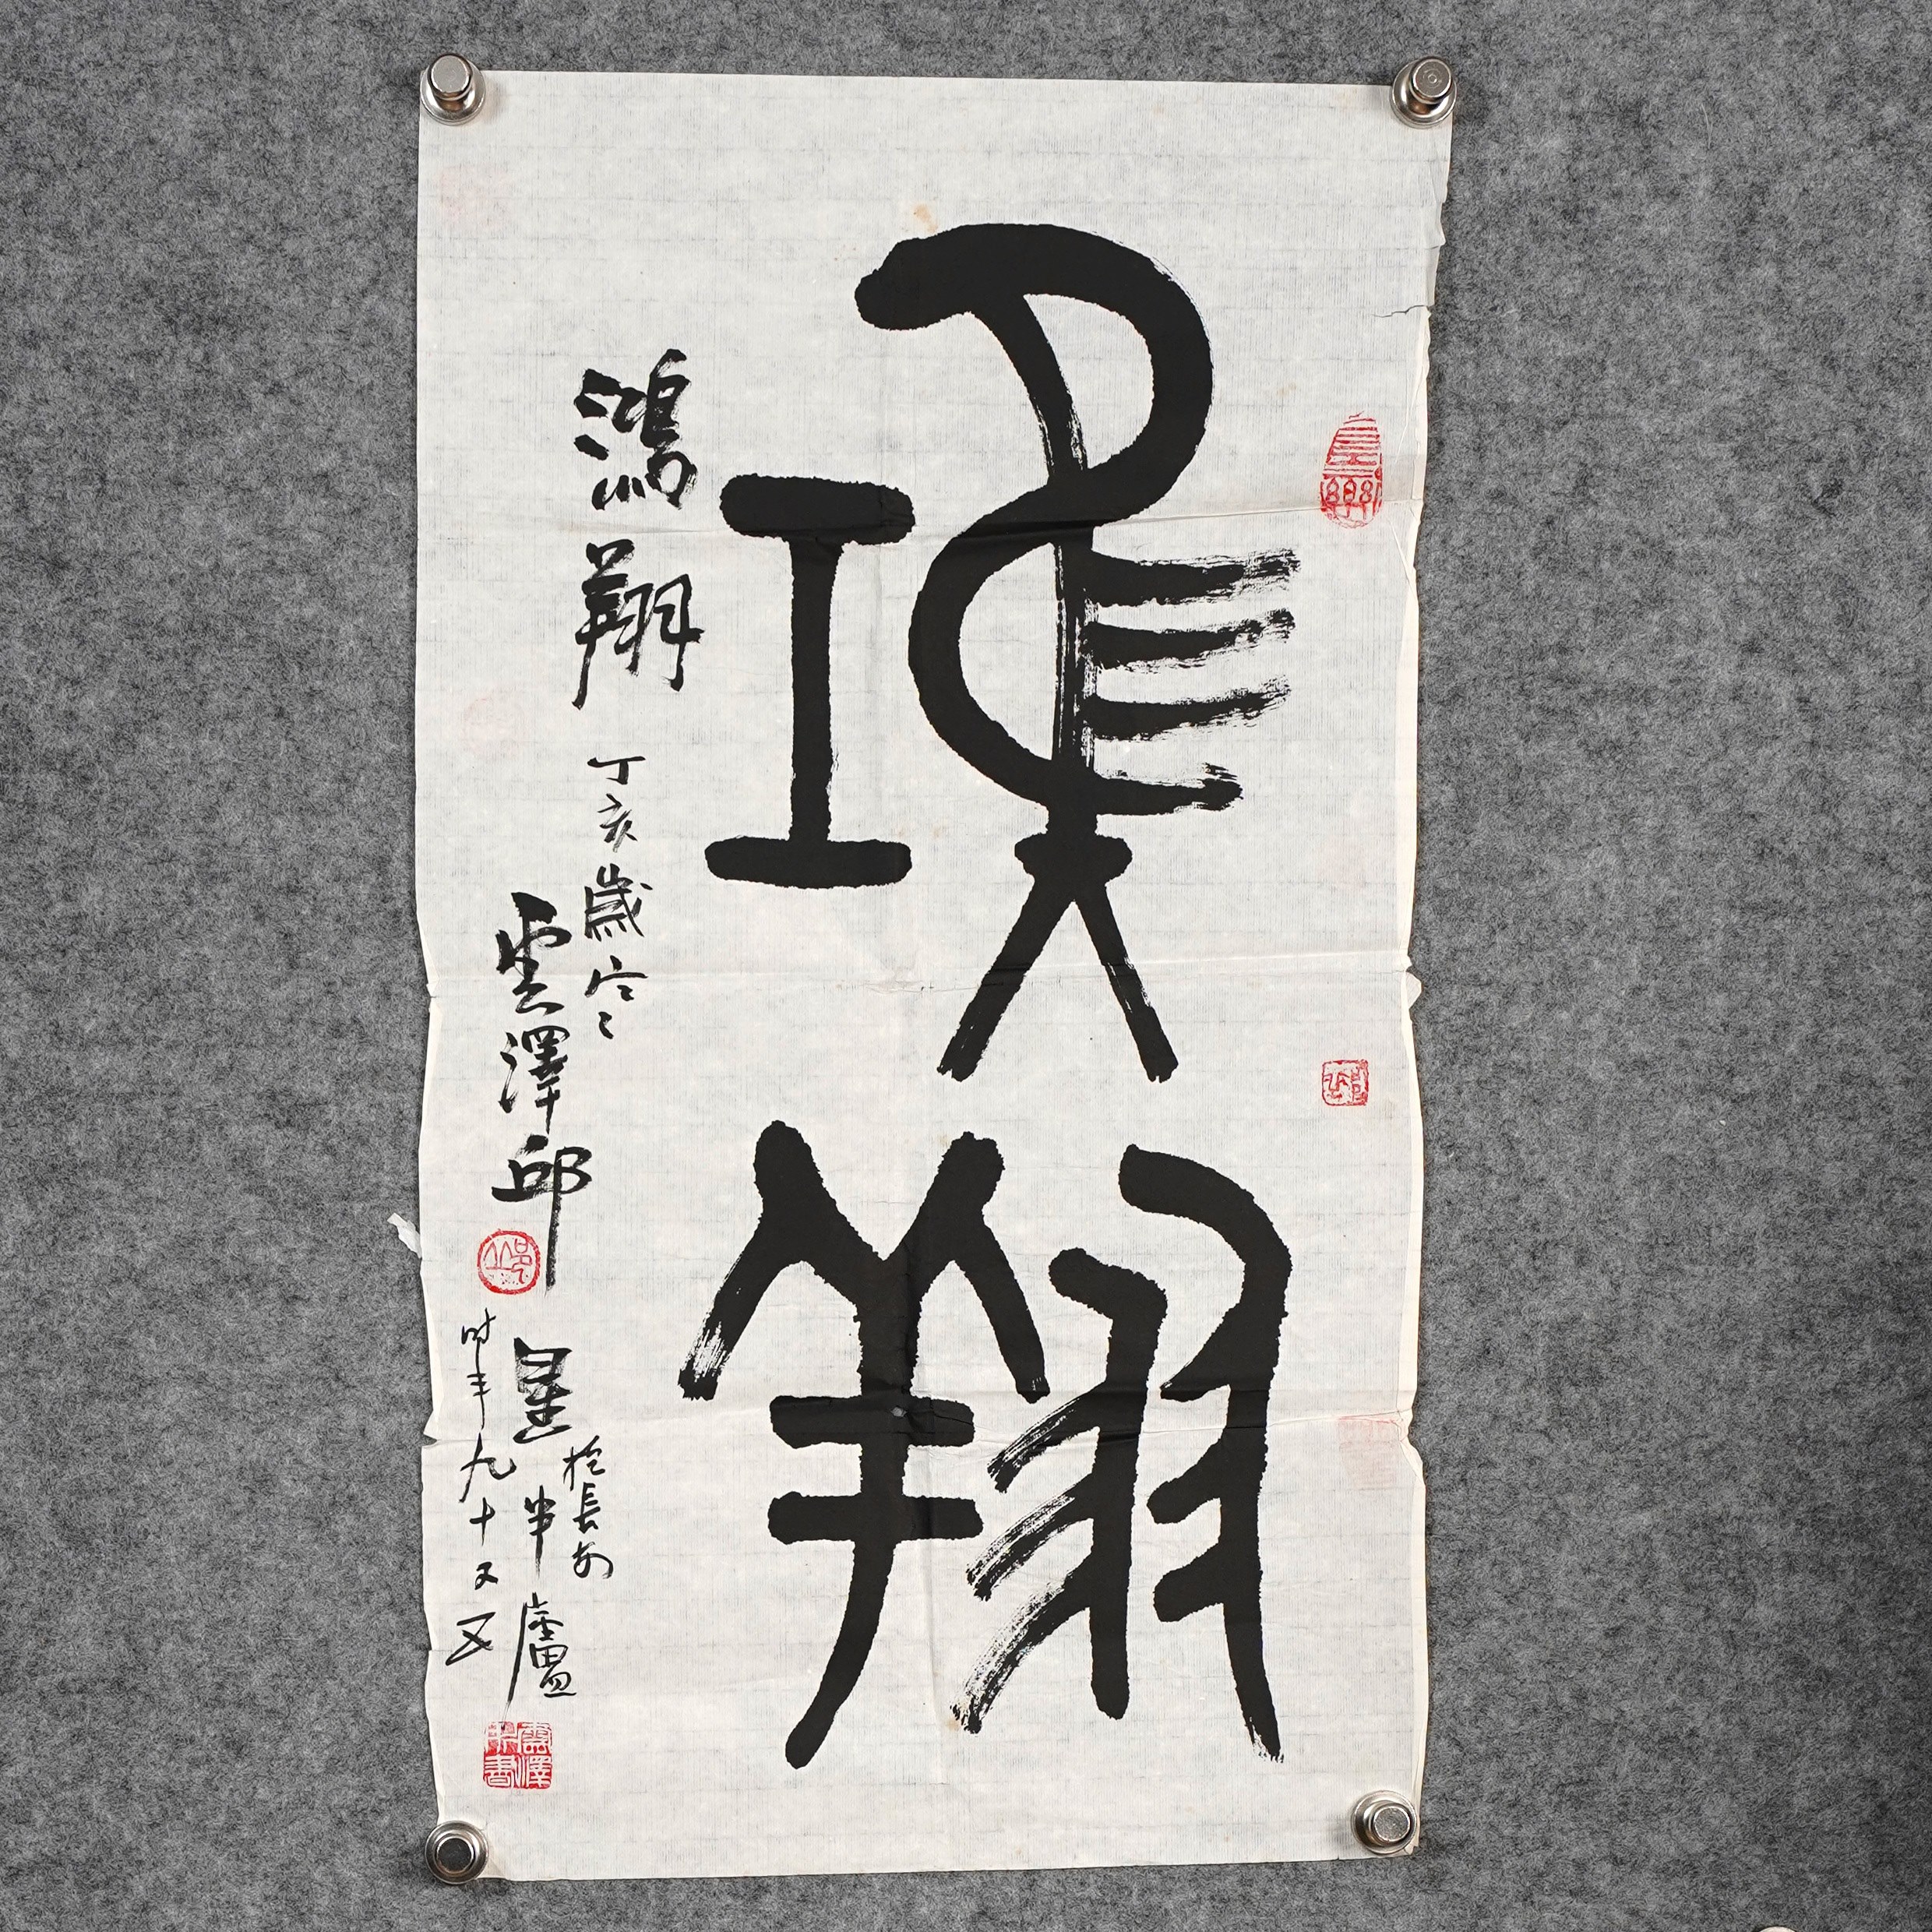 鴻翔
鴻翔
丁亥歲寒
雲澤邱星
於長安
半廬
时年九十又五
雲澤